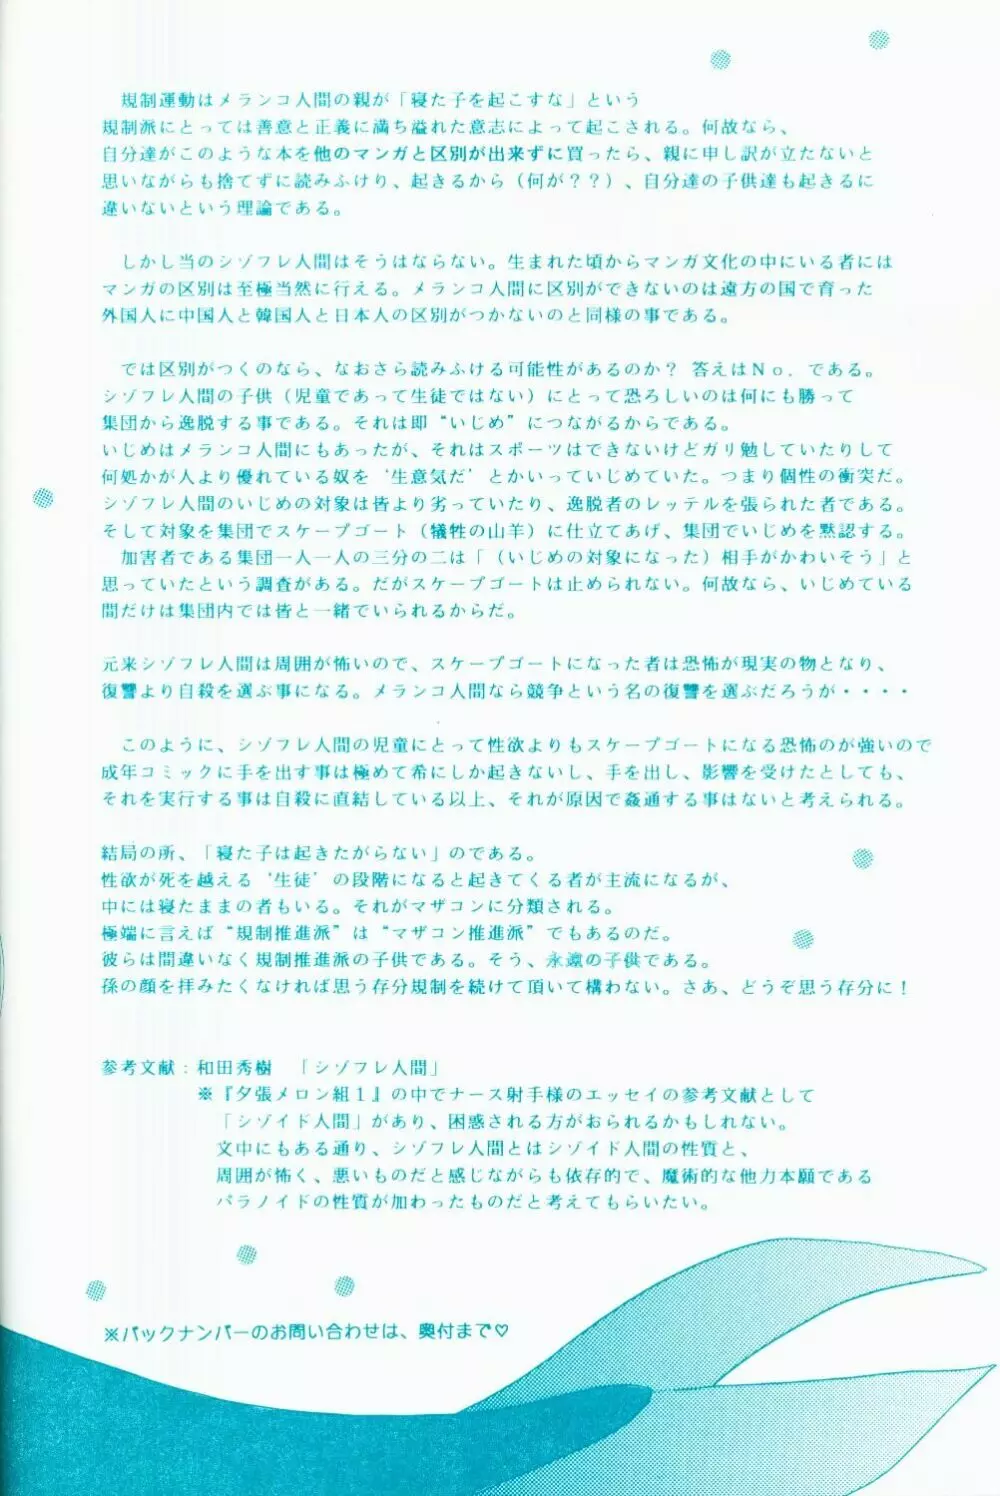 規制運動はメランコ人間の親が「寝た子を起こすな」という
規制派にとっては善意と正義に満ち溢れた意志によって起こされる。何故なら、
自分達がこのような本を他のマンガと区別が出来ずに買ったら、親に申し訳が立たないと
思いながらも捨てずに読みふけり、起きるから（何が？？）、自分達の子供達も起きるに
違いないという理論である。
しかし当のシゾフレ人間はそうはならない。生まれた頃からマンガ文化の中にいる者には
マンガの区別は至極当然に行える。メランコ人間に区別ができないのは遠方の国で育った
外国人に中国人と韓国人と日本人の区別がつかないのと同様の事である。
では区別がつくのなら、なおさら読みふける可能性があるのか？ 答えはＮｏ．である。
シゾフレ人間の子供（児童であって生徒ではない）にとって恐ろしいのは何にも勝って
集団から逸脱する事である。それは即“いじめ”につながるからである。
いじめはメランコ人間にもあったが、それはスポーツはできないけどガリ勉していたりして
何処かが人より優れている奴を‘生意気だ’とかいっていじめていた。つまり個性の衝突だ。
シゾフレ人間のいじめの対象は皆より劣っていたり、逸脱者のレッテルを張られた者である。
そして対象を集団でスケープゴート（犠牲の山羊）に仕立てあげ、集団でいじめを黙認する。
加害者である集団一人一人の三分の二は「（いじめの対象になった）相手がかわいそう」と
思っていたという調査がある。だがスケープゴートは止められない。何故なら、いじめている
間だけは集団内では皆と一緒でいられるからだ。
元来シゾフレ人間は周囲が怖いので、スケープゴートになった者は恐怖が現実の物となり、
復讐より自殺を選ぶ事になる。メランコ人間なら競争という名の復讐を選ぶだろうが・・・・
このように、シゾフレ人間の児童にとって性欲よりもスケープゴートになる恐怖のが強いので
成年コミックに手を出す事は極めて希にしか起きないし、手を出し、影響を受けたとしても、
それを実行する事は自殺に直結している以上、それが原因で姦通する事はないと考えられる。
結局の所、「寝た子は起きたがらない」のである。
性欲が死を越える‘生徒’の段階になると起きてくる者が主流になるが、
中には寝たままの者もいる。それがマザコンに分類される。
極端に言えば“規制推進派”は“マザコン推進派”でもあるのだ。
彼らは間違いなく規制推進派の子供である。そう、永遠の子供である。
孫の顔を拝みたくなければ思う存分規制を続けて頂いて構わない。さあ、どうぞ思う存分に！
参考文献：和田秀樹　「シゾフレ人間」
※『夕張メロン組１』の中でナース射手様のエッセイの参考文献として
「シゾイド人間」があり、困惑される方がおられるかもしれない。
文中にもある通り、シゾフレ人間とはシゾイド人間の性質と、
周囲が怖く、悪いものだと感じながらも依存的で、魔術的な他力本願である
パラノイドの性質が加わったものだと考えてもらいたい。
※バックナンバーのお問い合わせは、奥付まで♡